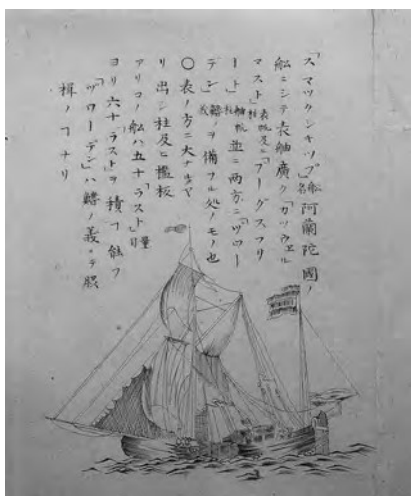 「スマツクシキップ」船名阿蘭陀國ノ
船ニシテ表舳廣ク「ガッウェル
マスト」表帆柱及ヒ「ブーグスフリ
ート」舳帆柱並ニ両方ニ「ヅロー
デン」鰭ヲ備フル処ノモノ也
〇表ノ方ニ大ナルヤ
リ出シ柱及ヒ檻板
アリコノ船ハ五十「ラスト」量目
ヨリ六十「ラスト」ヲ積ヿ能フ
「ヅローデン」ハ鰭ノ義ニテ脇
楫ノヿナリ